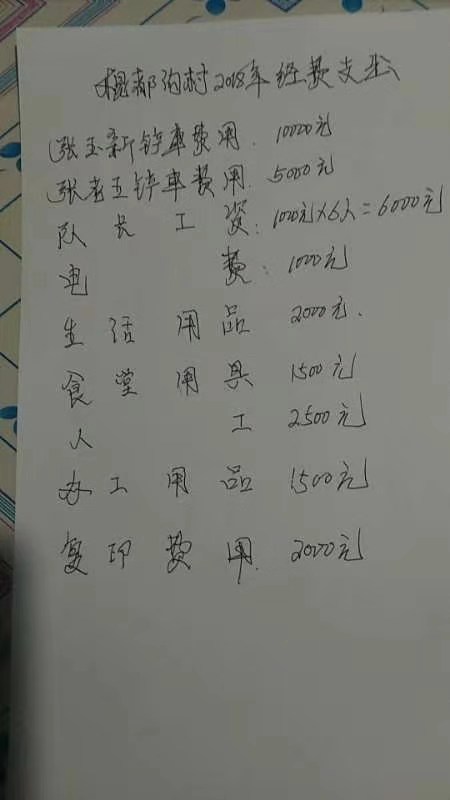 槐都沟村2018年经费支出
张玉新铲车费用. 10000元
张老五铲车费用. 5000元
队长工资: 1000元×6人=6000元
电费: 1000元
生活用品 2000元.
食堂用具 1500元
人工 2500元
办工用品 1500元
复印费用. 2000元